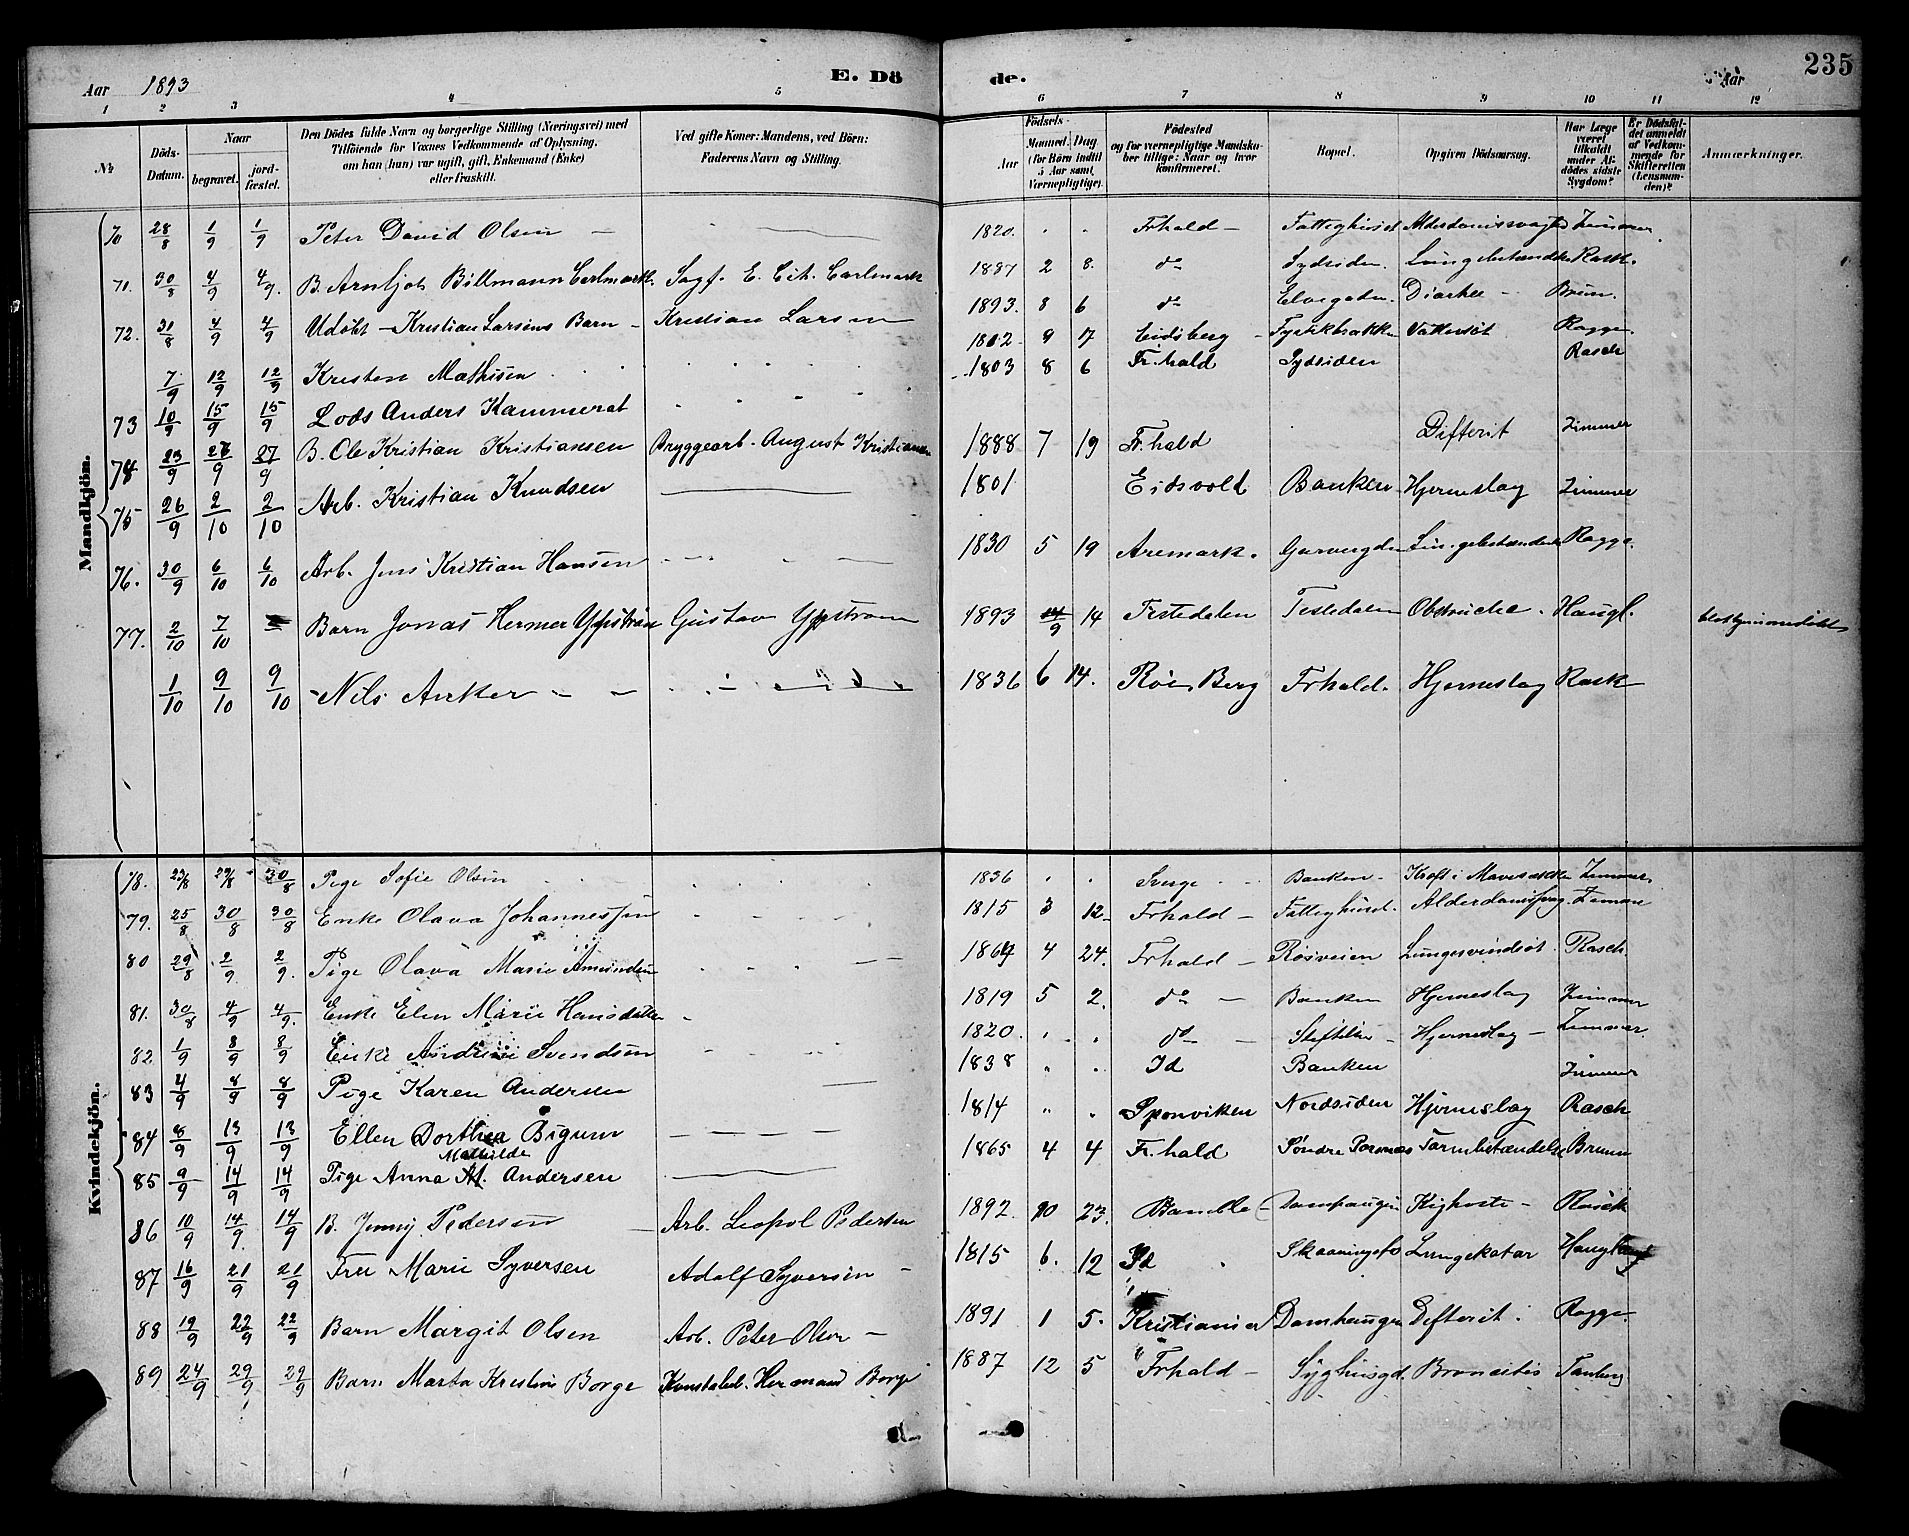 Aar 1893
E. Dö
de.
Aar
235
1 2 3 4 5 6 7 8 9 10 11 12
№
Döds-Datum.
Naar
begravet.
jordfæstet.
Den Dödes fulde Navn og borgerlige Stilling (Næringsvei) med Tilföiende for Voxnes Vedkommende af Oplysning, om han (hun) var ugift, gift, Enkemand (Enke) eller fraskilt.
Ved gifte Koner: Mandens, ved Börn: Faderens Navn og Stilling.
Födsels-
Aar
Maaned Dag (for Börn indtil 5 Aar samt Værnepligtige).
Födested og for værnepligtige Mandskaber tillige: Naar og hvor konfirmeret.
Bopæl.
Opgiven Dödsaarsag.
Har Læge været tilkaldt under Afdödes sidste Sygdom?
Er Dödsfaldet anmeldt af Vedkommende for Skifteretten (Lensmanden)?
Anmærkninger.
Mandkjön.
70 28/8 1/9 1/9 Peter David Olsen — 1820. Frhald — Fattighuset Zimmer
71. 30/8 4/9 4/9. B. Arnljot Billmann Carlmark. Sagf. E. Cit. Carlmark 1887 2 8. do Sydsiden. Rask.
72. 31/8 4/9 4/9 Udöbt — Kristian Larsens Barn — Kristian Larsen 1893. 8 6 do Elvegaden. Diarhee — Brun.
7/9 12/9 12/9 Kristen Mathisen 1812 9 17 Eidsberg Vattersot Ragge.
73 10/9 15/9 15/9 Lods Anders Kammerat 1803 8 6 Fr.hald Sydsiden Rasch
74 23/9 27/9 27/9 B. Ole Kristian Kristiansen Bryggearb. August Kristiansen 1888 7 19 Fr.hald Difterit Zimmer
75 26/9 2/10 2/10 Arb. Kristian Knudsen — 1801 Eidsvold Banken Hjerneslag Zimmer
76. 30/9 6/10 6/10 Arb. Jens Kristian Hansen 1830 5 19 Aremark. Ragge.
77. 2/10 7/10 Barn Jonas Hermer Ypström Gustav Ypstrom 1893 14 Tistedalen Tistedalen Haugl.
1/10 9/10 9/10 - Nils Anker — — 1836 6 14. Röd, Berg Frhald. Hjerneslag Rask
Kvindekjön.
78. 23/8 29/8 30/8 Pige Sofie Olsen 1836 Sverge Banken — Kræft i Mavesækken Zimmer.
79. 25/8 30/8 30/8 Enke Olava Johannessen 1815 3 12. Frhald — Fattighuset. Zimmer
80 29/8 2/9 2/9. Pige Olava Marie Amundsen 1869 4 24. Frhald — Rösveien Lungesvindsot. Rasch.
81. 30/8 4/9 4/9. Enke Elen Marie Hansdatter 1819 5 2. do — Banken Hjerneslag Zimmer
82 1/9 8/9 8/9 Enke Andrine Svendsen 1820. do — Hjerneslag — Zimmer.
83 4/9 8/9 8/9 Pige Karen Andersen 1838 Id Banken Zimmer
84 8/9 13/9 13/9 Ellen Dorthea Bigum 1814 Sponviken Nordsiden Hjerneslag Rasch
Mathilde
85 9/9 14/9 14/9 Pige Anna M. Andersen 1865 4 4 Fr.hald Söndre Tarmbetændelse Bruun
86 10/9 14/9. 14/9 B. Jenny Pedersen — Arb. Leopol Pedersen 1892. 10 23. Bamble Damhaugen Kighoste — Rasch
87 16/9 21/9 21/9 Fru Marie Syversen Adolf Syversen — 1815 6. 12 Id Lungekatar
88 19/9 22/9 22/9 Barn Margit Olsen Arb. Peter Olsen — 1891 1 5. Kristiania Damhaugen Difterit. Ragge.
89 24/9 29/9 29/9 Barn Marta Kristine Borge Konstabel. Hermand Borge 1887 12 5 Frhald — Syghusgd. Broncitis Tanberg